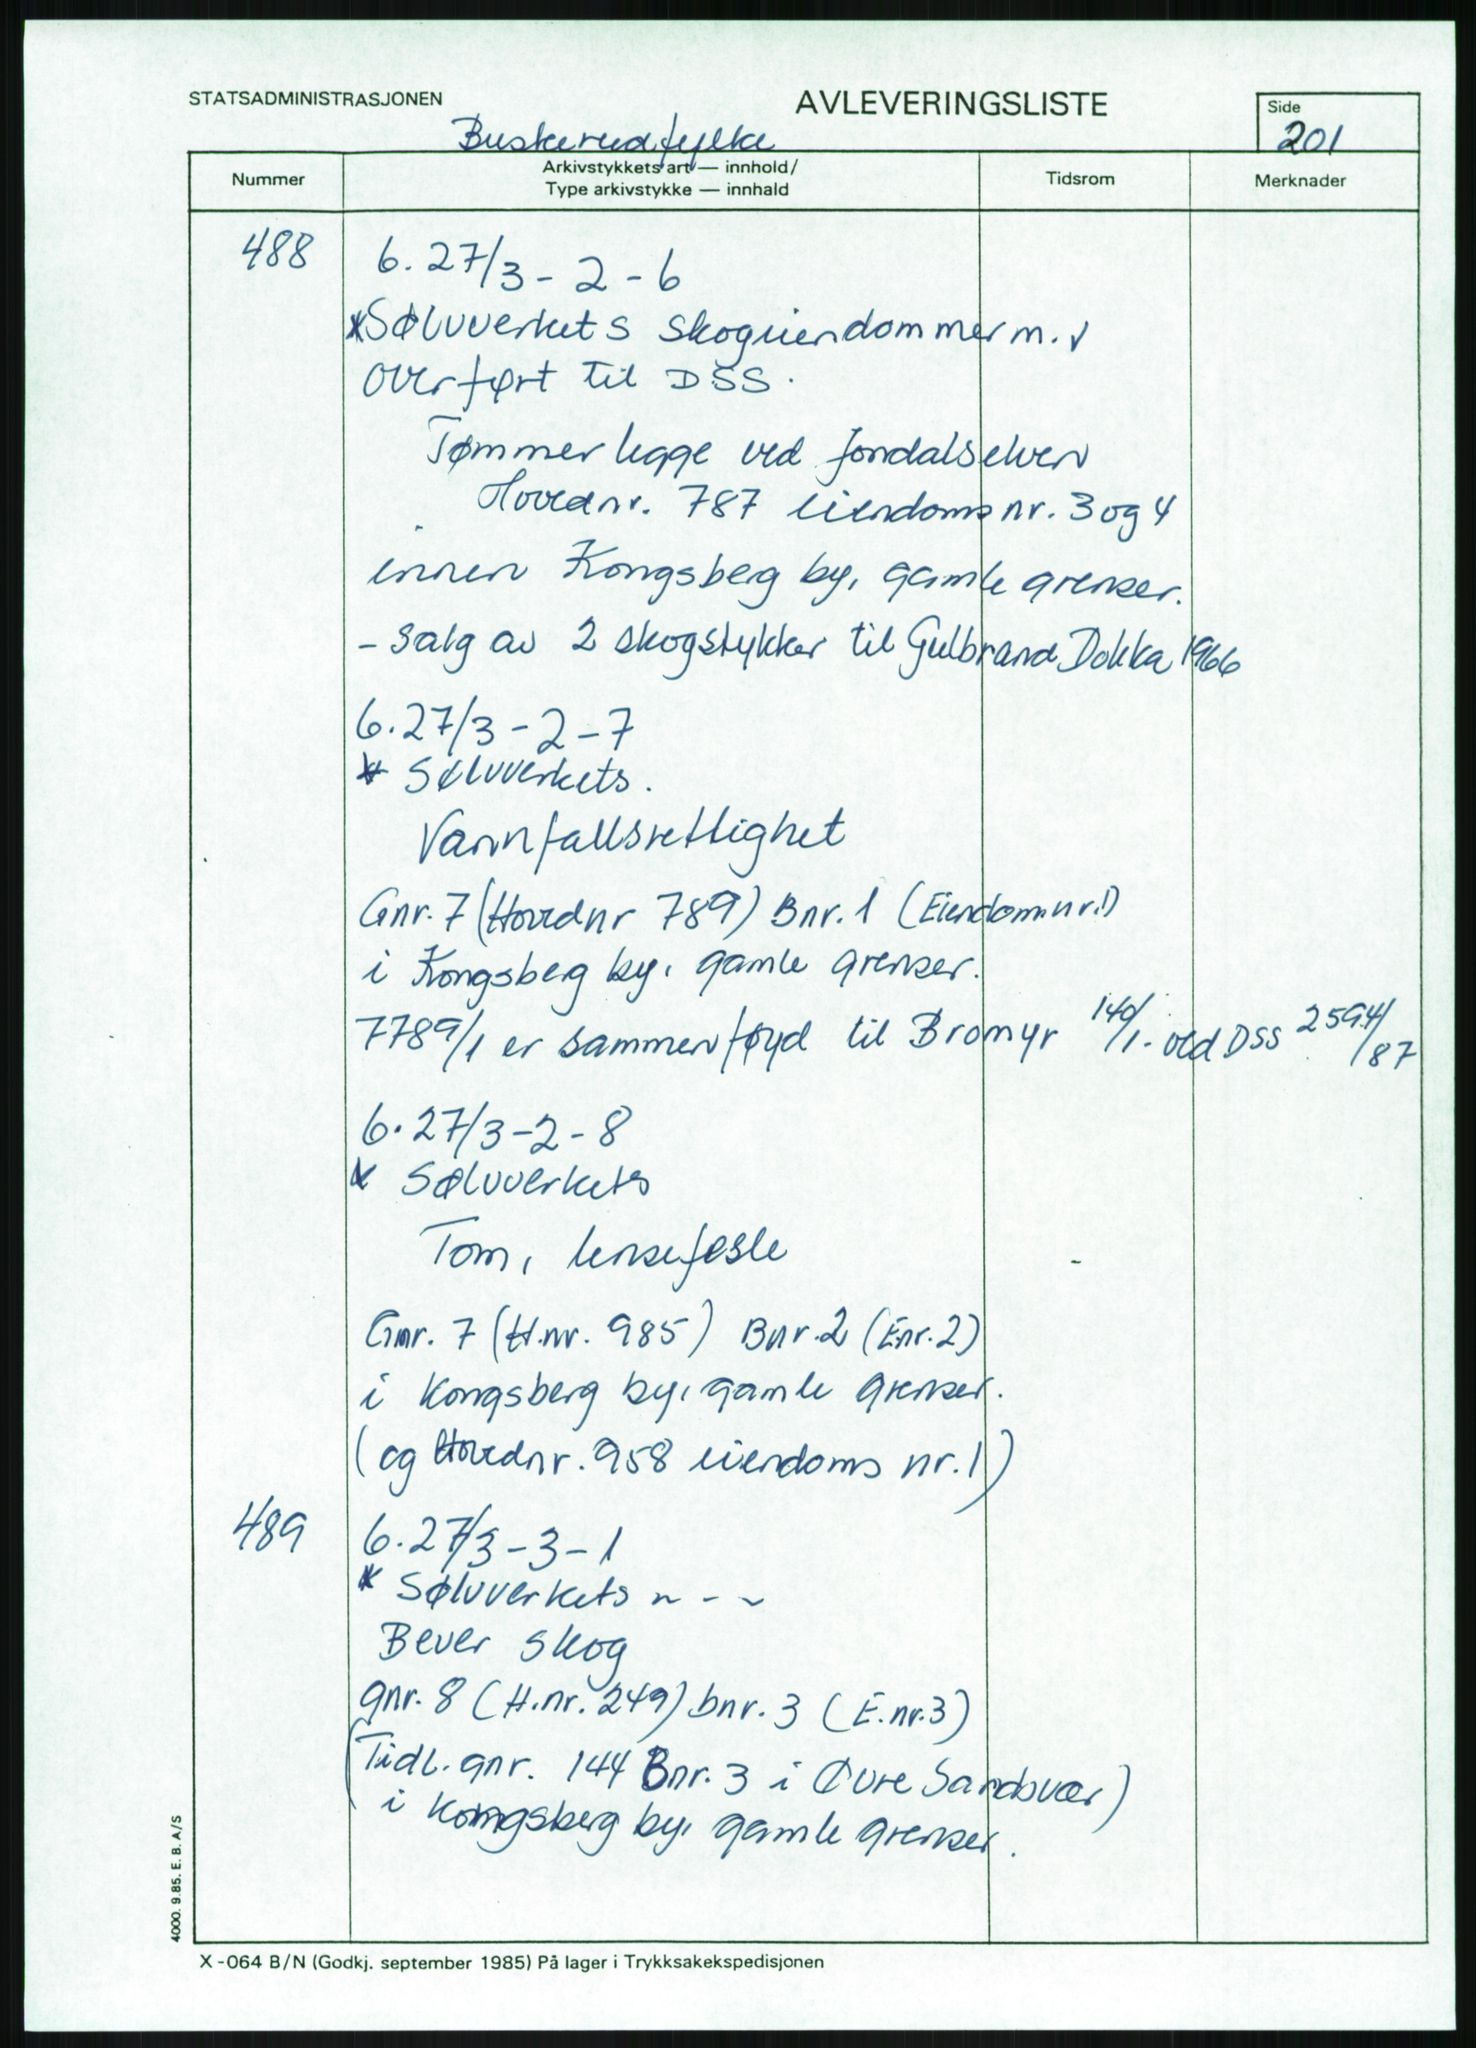 STATSADMINISTRASJONEN
AVLEVERINGSLISTE
Side
201
Buskerud fylke
Nummer
Arkivstykkets art — innhold/
Type arkivstykke — innhald
Tidsrom
Merknader
488
6.27/3-2-6
*Sølvverkets skogeiendommer m.v
overført til DSS.
Tømmerlegge ved Jondalselven
Hovednr. 787 eiendoms nr. 3 og 4
innen Kongsberg by, gamle grenser.
- salg av 2 skogstykker til Gulbrand Dokka 1966
6.27/3-2-7
* Sølvverkets.
Vannfallsrettighet
Gnr. 7 (Hovednr 789) Bnr. 1 (Eiendom.nr.1)
i Kongsberg by, gamle grenser.
7789/1 er sammenføyd til Bromyr 140/1. ved DSS 2594/87
6.27/3-2-8
* Sølvverkets
Tom, lensefeste
Gnr. 7 (H.nr. 985) Bnr. 2 (E.nr. 2)
i Kongsberg by, gamle grenser.
(og Hovednr. 958 eiendoms nr. 1)
489
6.27/3-3-1
* Sølvverkets ~ - ~
Bever skog
gnr. 8 (H.nr. 249) bnr. 3 (E.nr.3)
(Tidl. gnr. 144 Bnr. 3 i Øvre Sandsvær)
i Kongsberg by, gamle grenser.
4000. 9.85. E. B. A/S
X-064 B/N (Godkj. september 1985) På lager i Trykksakekspedisjonen